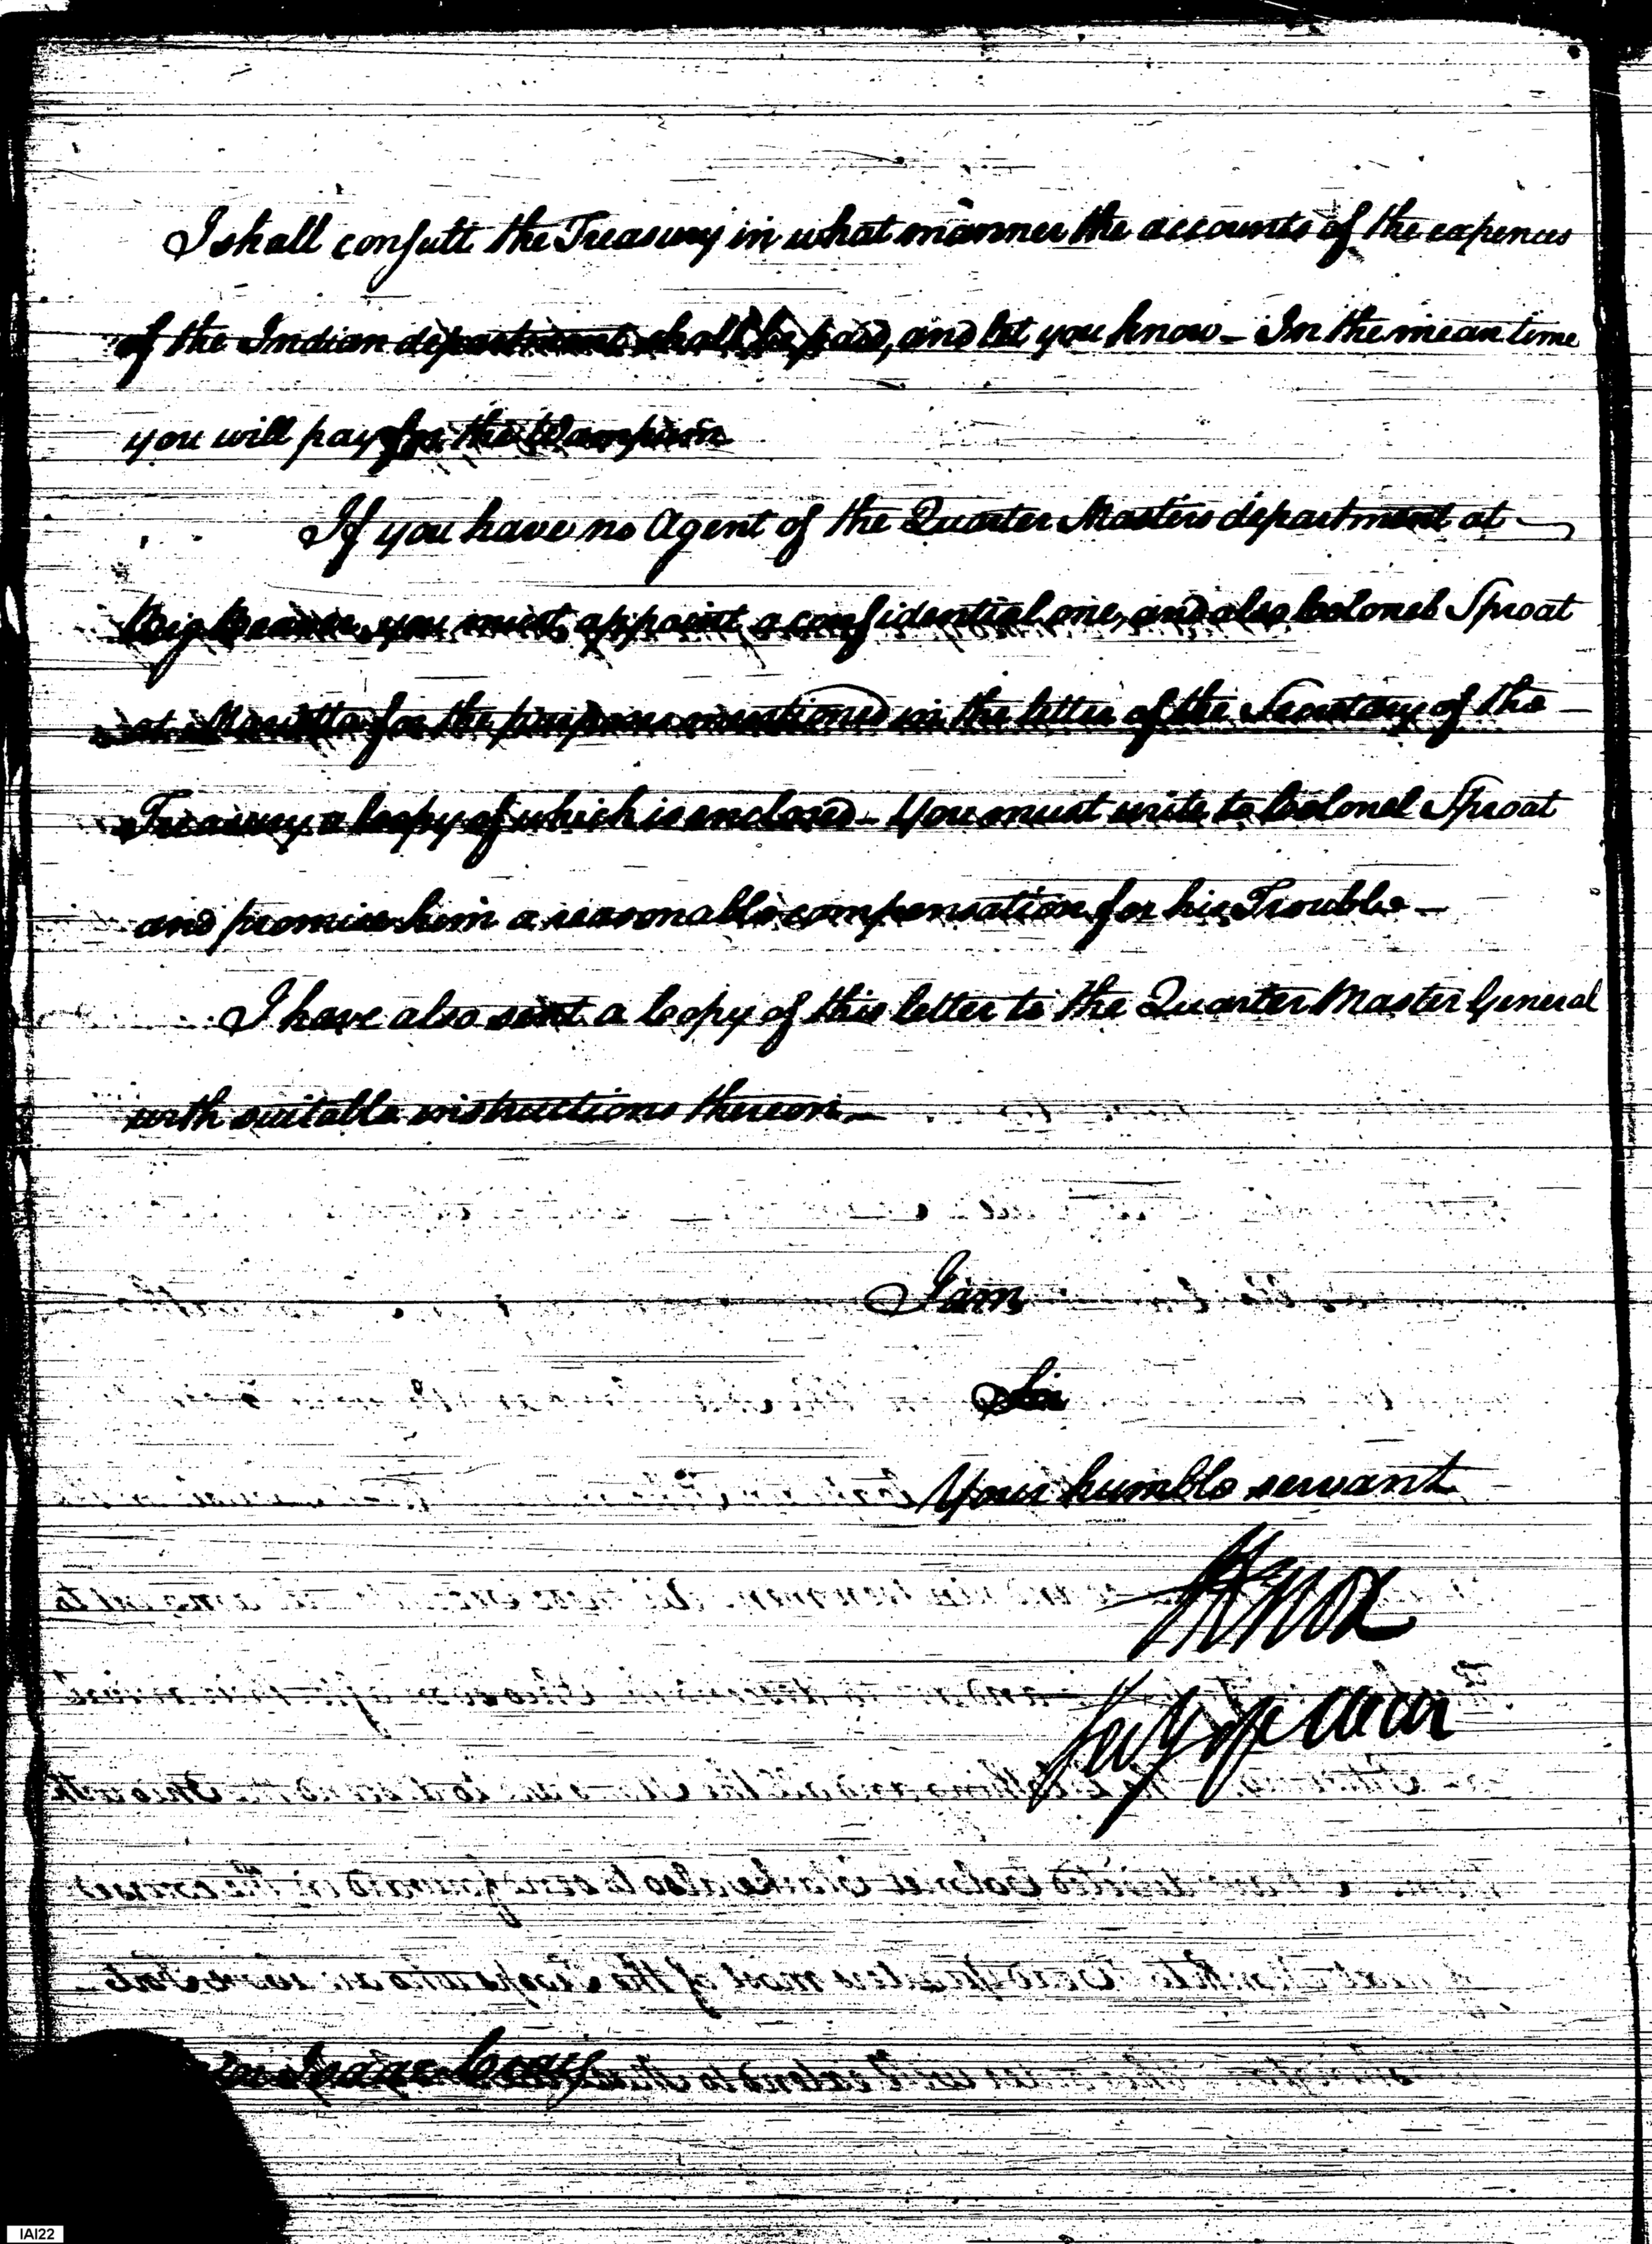 I shall consult the Treasury in what manner the accounts of the expences
of the Indian department shall be paid, and let you know - In the mean time
you will pay for the Wampum
If you have no Agent of the Quarter Masters department at
Big Beaver, you must appoint a confidential one, and also Colonel Sproat
at Marietta for the purposes mentioned in the letter of the Secretary of the
Treasury a Copy of which is enclosed - You must write to Colonel Sproat
and promise him a reasonable compensation for his Trouble -
I have also sent a Copy of this letter to the Quarter Master General
with suitable instructions thereon -
I am
Sir
Your humble servant
HKnox
Secy of War
Isaac Craig
IAI22